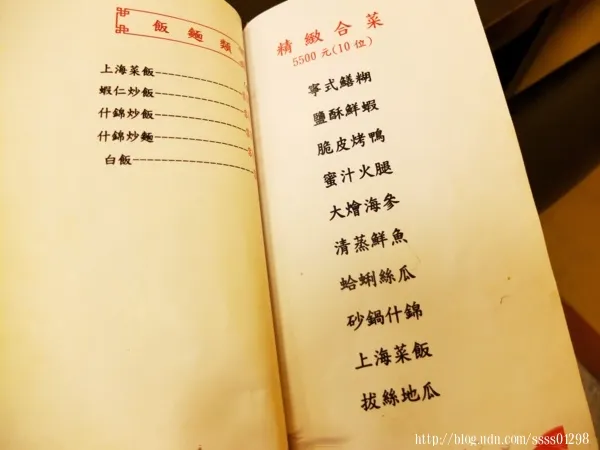 飯麵類
上海菜飯
蝦仁炒飯
什錦炒飯
什錦炒麵
白飯
精緻合菜
5500元(10位)
寧式鱔糊
鹽酥鮮蝦
脆皮烤鴨
蜜汁火腿
大燴海參
清蒸鮮魚
蛤蜊絲瓜
砂鍋什錦
上海菜飯
拔絲地瓜
http://blog.udn.com/ssss01298